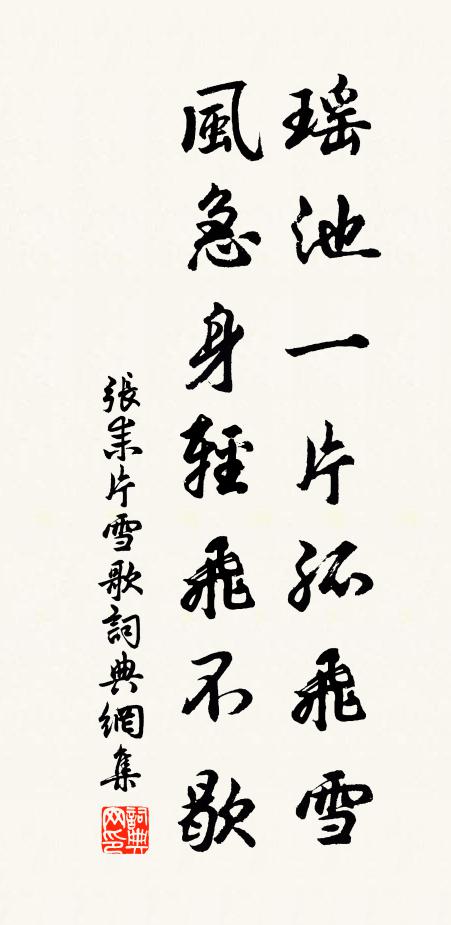 瑤池一片孤飛雪
風急身輕飛不歇
張耒片雪歌詞典網集
詞典網印